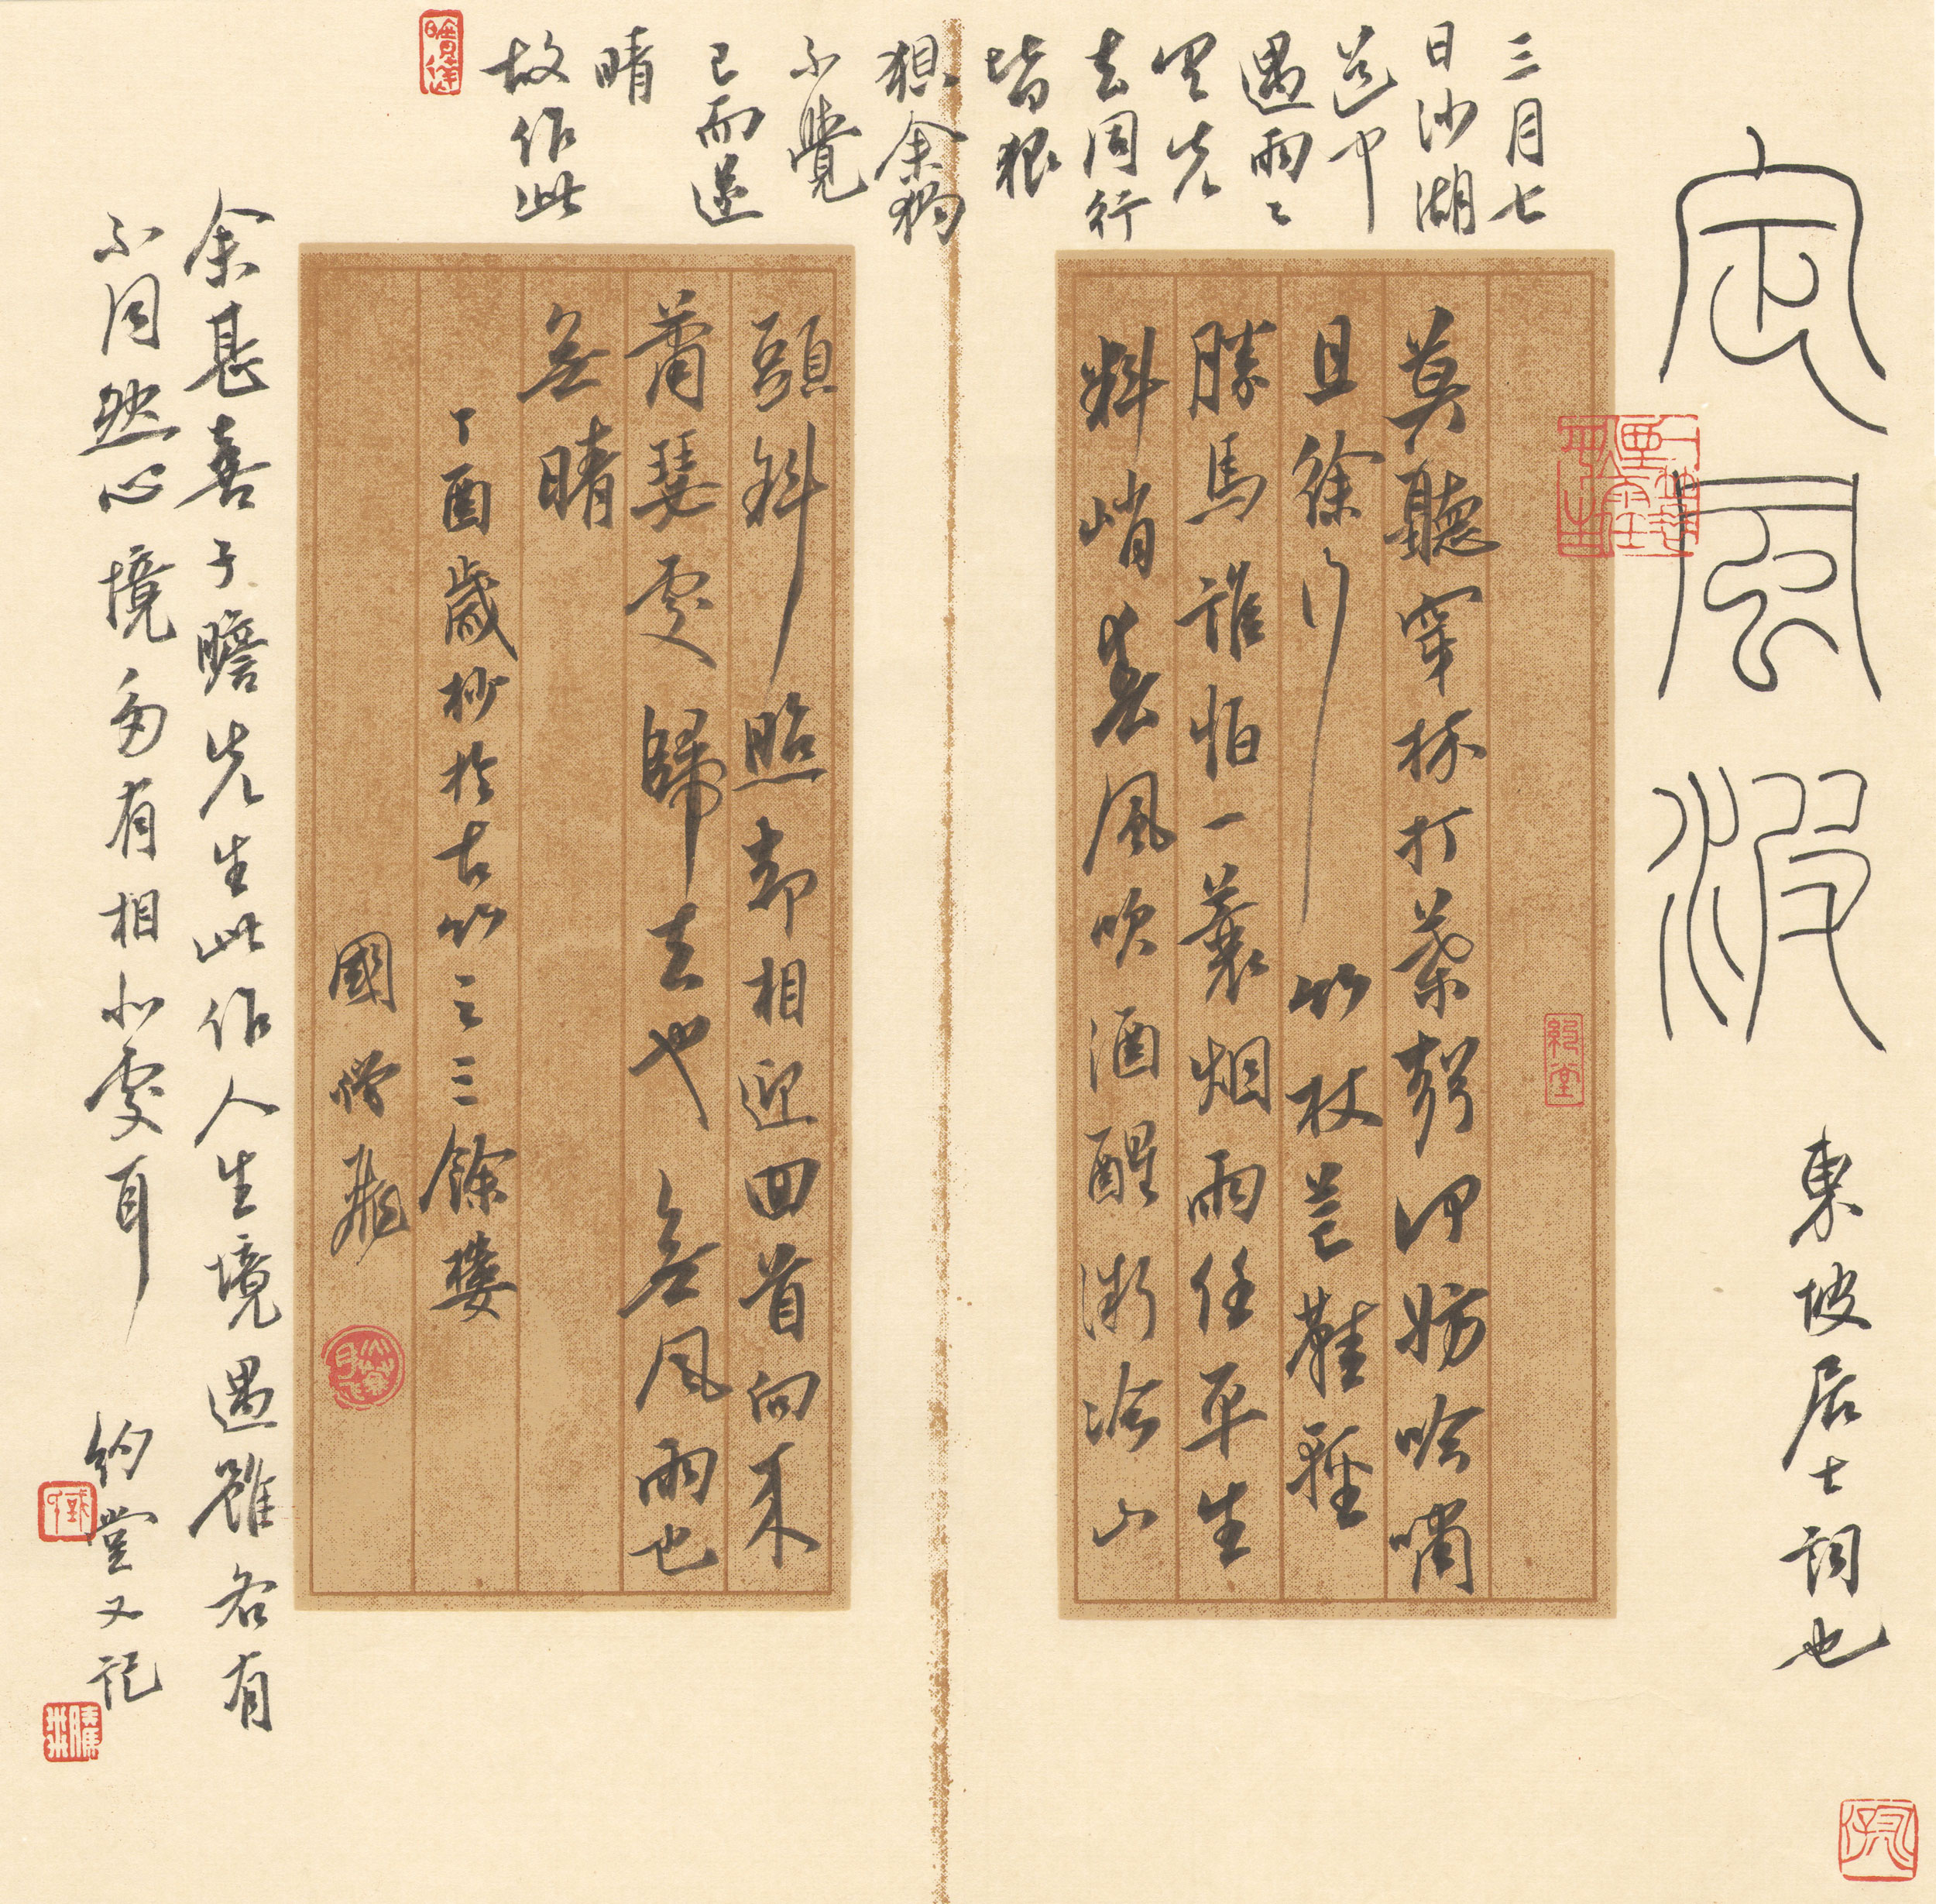 定風波
東坡居士詞也
三月七
日沙湖
道中
遇雨〻
具先
去同行
皆狼
狽余獨
不覺
已而遂
晴
故作此
約堂
莫聽穿林打葉聲何妨吟嘯
且徐行竹杖芒鞋輕
勝馬誰怕一蓑烟雨任平生
料峭春風吹酒醒微冷山
頭斜照却相迎回首向來
蕭瑟處歸去也無風雨也
無晴
丁酉歲杪於古竹之三餘樓
國
余甚喜子瞻先生此作人生境遇雖各有
不同然心境多有相似處耳
約堂又記